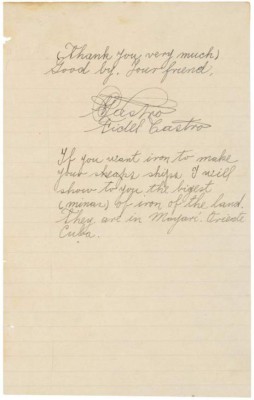 (Thank you very much)
Good by. Your friend,
Castro
Fidel Castro
If you want iron to make
your sheaps ships I will
show to you the bigest
(minas) of iron of the land.
They are in Mayari. Oriente
Cuba.